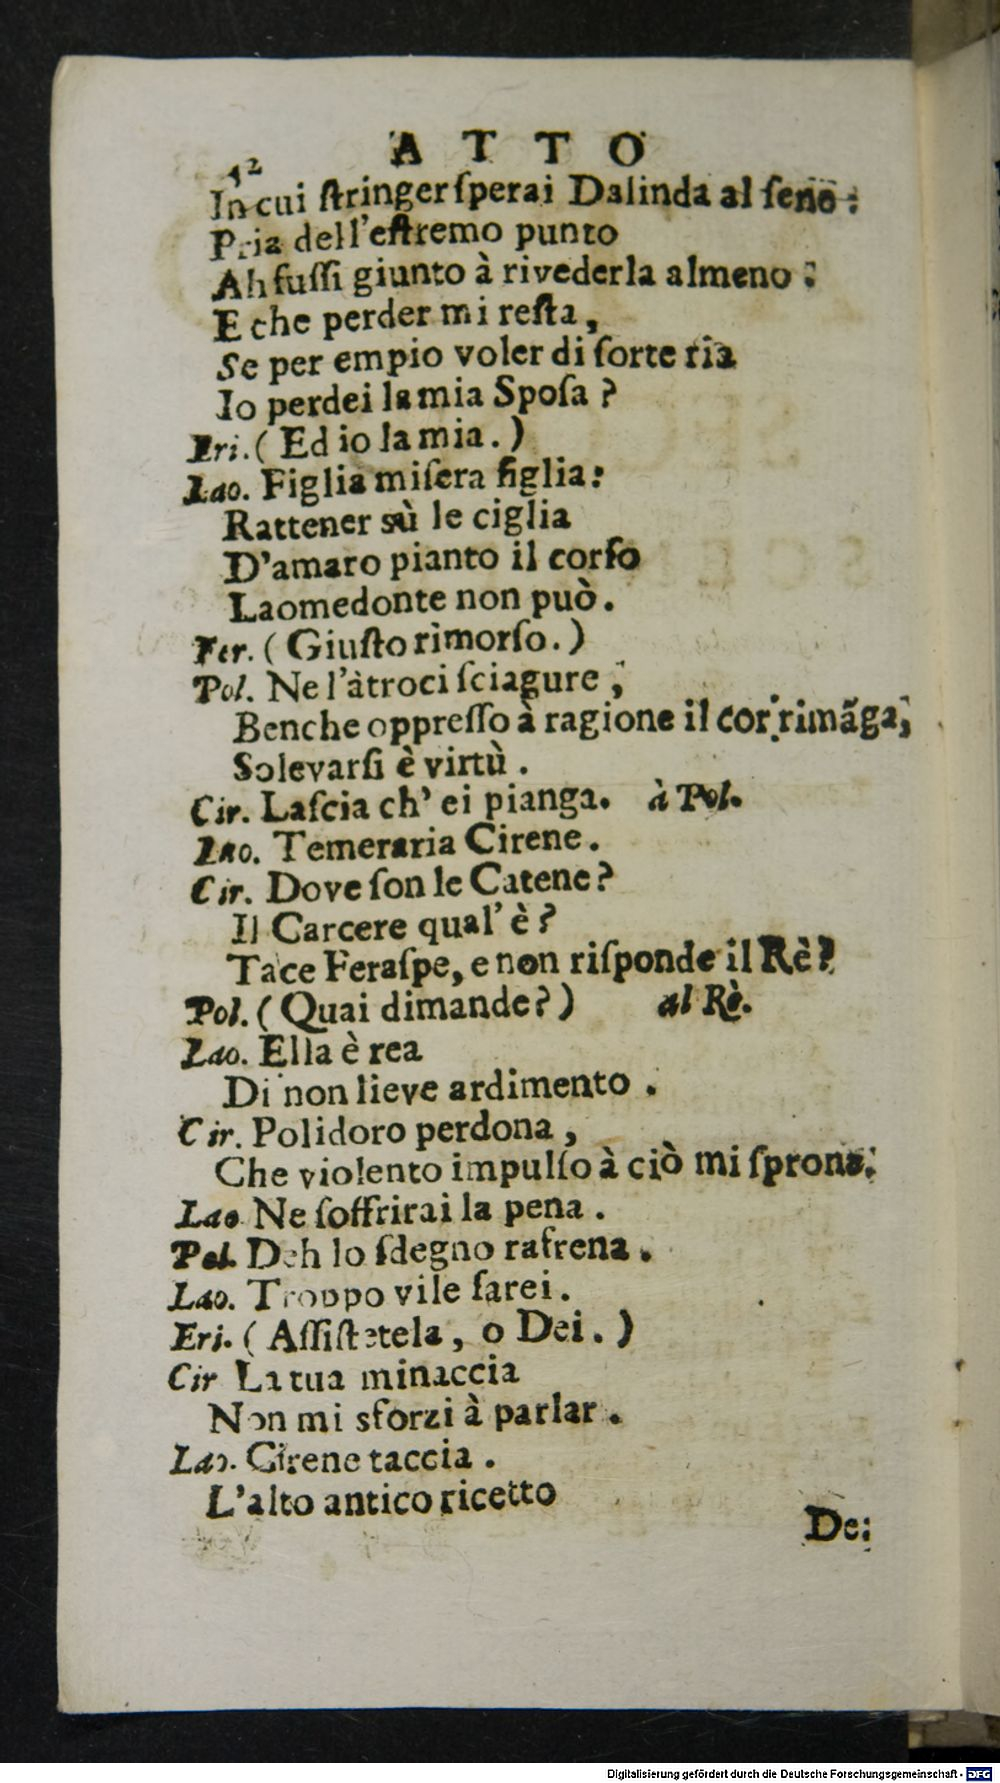 42 ATTO
In cui ſtringer ſperai Dalinda al ſeno:
Pria dell'eſtremo punto
Ah fuſſi giunto à rivederla almeno:
E che perder mi reſta,
Se per empio voler di ſorte ria
Io perdei la mia Spoſa?
Eri. (Ed io la mia.)
Lao. Figlia miſera figlia:
Rattener sù le ciglia
D'amaro pianto il corſo
Laomedonte non può.
Fer. (Giuſto rimorſo.)
Pol. Ne l'atroci ſciagure;
Benche oppreſſo à ragione il cor rimãga;
Solevarſi è virtù.
Cir. Laſcia ch' ei pianga. à Pol.
Lao. Temeraria Cirene.
Cir. Dove ſon le Catene?
Il Carcere qual' è?
Tace Feraſpe, e non riſponde il Rè?
Pol. (Quai dimande?) al Rè.
Lao. Ella è rea
Di non lieve ardimento.
Cir. Polidoro perdona,
Che violento impulſo à ciò mi ſprona.
Lao Ne ſoffrirai la pena.
Pol. Deh lo ſdegno rafrena.
Lao. Troppo vile ſarei.
Eri. (Aſſiſtetela, o Dei.)
Cir La tua minaccia
Non mi sforzi à parlar.
Lao. Cirene taccia.
L'alto antico ricetto
De:
Digitalisierung gefördert durch die Deutsche Forschungsgemeinschaft - DFG